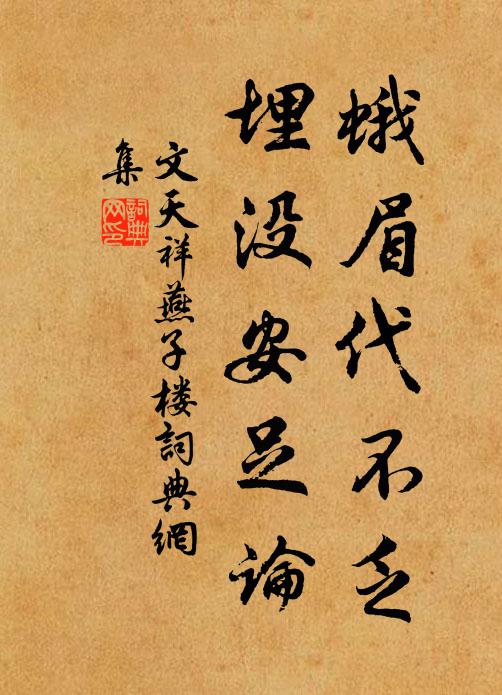 蛾眉代不乏
埋没安足論
文天祥燕子楼詞典網
集
詞典
网印